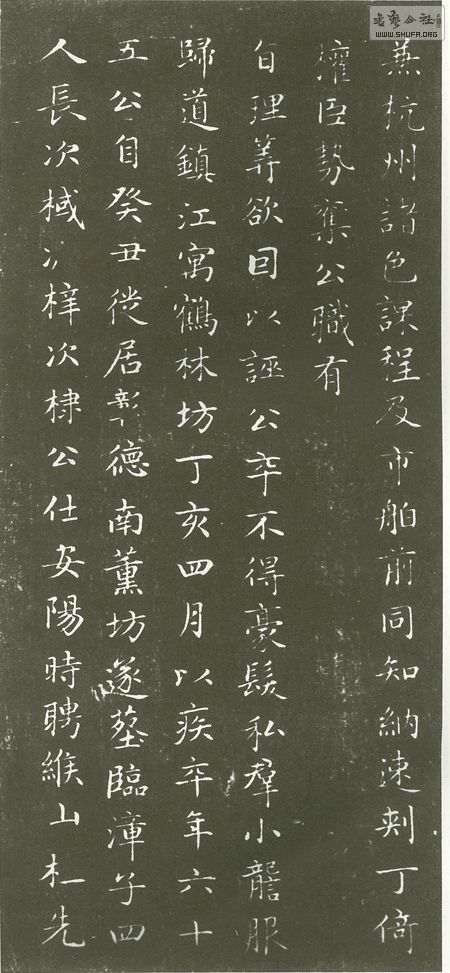 書藝公社
WWW.SHUFA.ORG
兼杭州諸色課程及市舶前同知納速剌丁倚
權臣勢棄公職有
旨理筭欲因以誣公卒不得豪髮私群小讋服
歸道鎮江寓鶴林坊丁亥四月以疾卒年六十
五公自癸丑徙居彰德南薰坊遂塟臨漳子四
人長次棫次梓次棣公仕安陽時聘緱山杜先